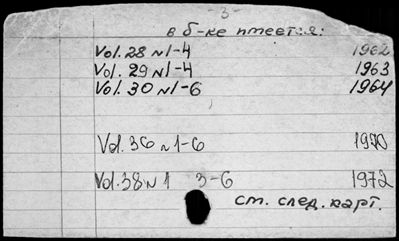 -3-
в б-ке имеется:
Vol. 28 N 1-4 1962
Vol. 29 N 1-4 1963
Vol. 30 N 1-6 1964
Vol. 36 N 1-6 1970
Vol. 38 N 1 3-6 1972
ст. след. карт.